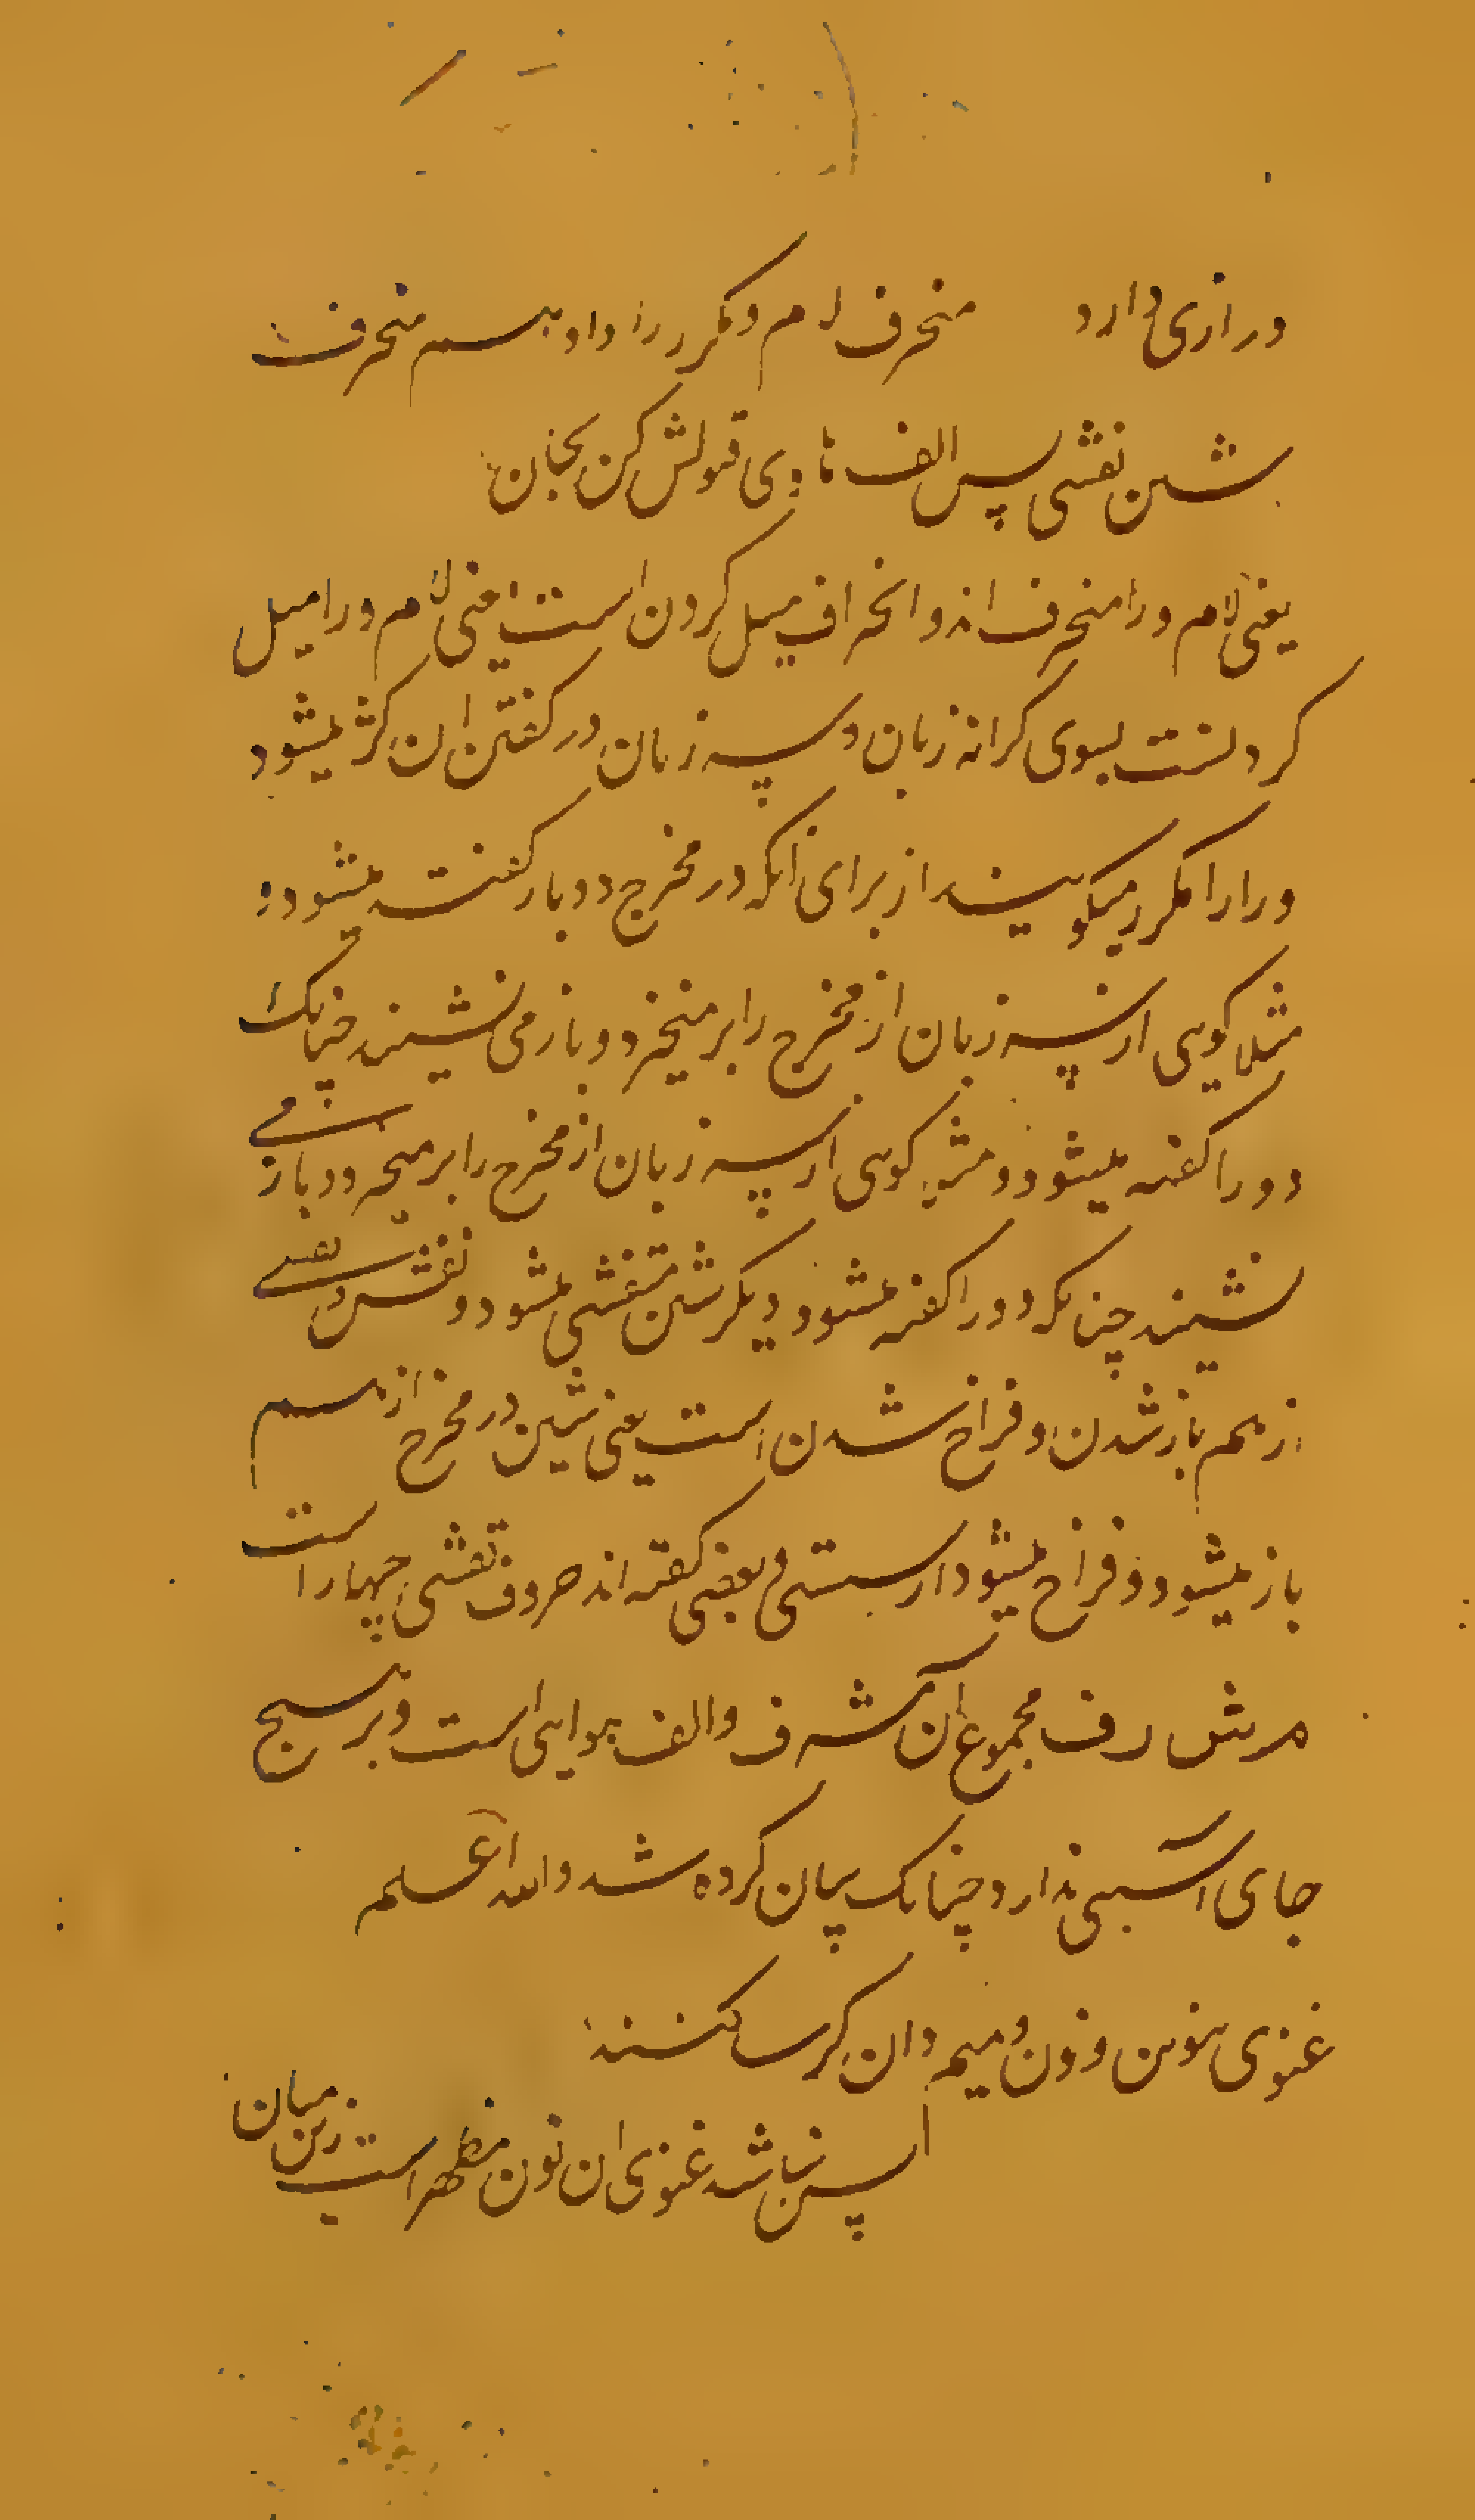 درازی دارد منحرف لام و مکرر را و او هم منحرف
شین تفشی پس الف هاوی قبولش کن بجان
یعنی لام و را منحرف اند و انحراف میل کردن است یعنی لام و را میل
کردنست بسوی کرانه زبان و سر زبان در کفتن ان کژ میشود
و را را مکرر میکویند از برای انکه در مخرج دو بار کفت میشود
مثلا کویی ار سر زبان از مخرج را بر میخیزد و باز می نشیند چنانک
دو را کفته میشود و مثلا کویی ار سر زبان از مخرج را بر میخیزد و باز می
نشیند چنانکه دو را کفته میشود دیکر شین متفشی میشود و تفشی
از هم باز شدن و فراخ شدن است یعنی شین در مخرج از هم
باز میشود و فراخ میشود از سستی و بعضی کفته اند حروف تفشی چهار است
م ر ش ف مجموع آن مشرف و الف هوایی است و بر هیچ
جای آسیبی ندارد چنانک بیان کرده شد والله اعلم
غنوی تنوین و نون و میم دان کر ساکنند
پس نباشد غنوی ان نون مظهر است زین میان